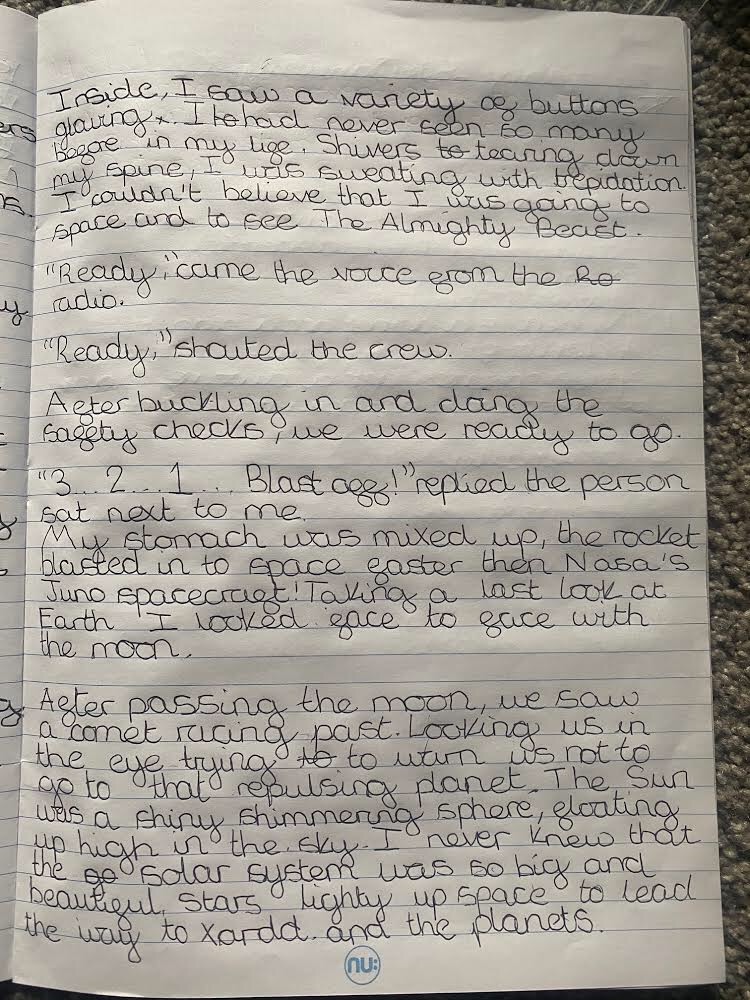 Inside, I saw a variety of buttons
glowing. I to had never seen so many
before in my life. Shivers to tearing down
my spine, I was sweating with trepidation.
I couldn't believe that I was going to
space and to see The Almighty Beast.
"Ready," came the voice from the Ro
radio.
"Ready," shouted the crew.
After buckling in and doing the
safety checks, we were ready to go.
"3... 2... 1... Blast off!" replied the person
sat next to me.
My stomach was mixed up, the rocket
blasted in to space faster then Nasa's
Juno spacecraft! Taking a last look at
Earth I looked face to face with
the moon.
After passing the moon, we saw
a comet racing past. Looking us in
the eye trying to to warn us not to
go to that repulsing planet. The Sun
was a shiny shimmering sphere, floating
up high in the sky. I never knew that
the so solar system was so big and
beautiful. Stars lighty up space to lead
the way to Xardd. and the planets.
nu: